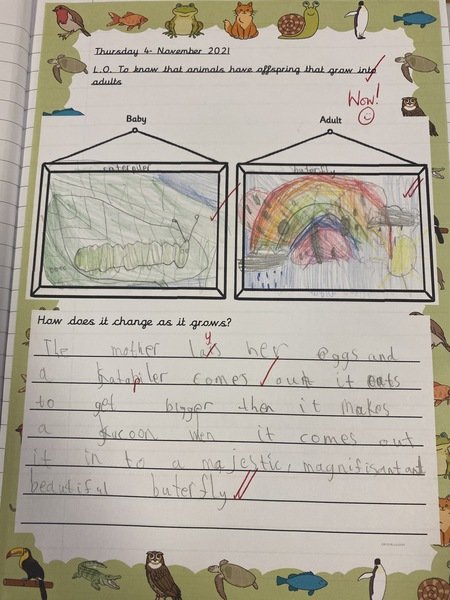 Thursday 4th November 2021
L.O. To know that animals have offspring that grow into
adults
Wow!
Baby
Adult
buterfly
How does it change as it grows?
The mother lays her eggs and
a comes out it eats
to get bigger then it makes
a wen it comes out
it in to a majestic, magnifisant and
beautiful buterfly